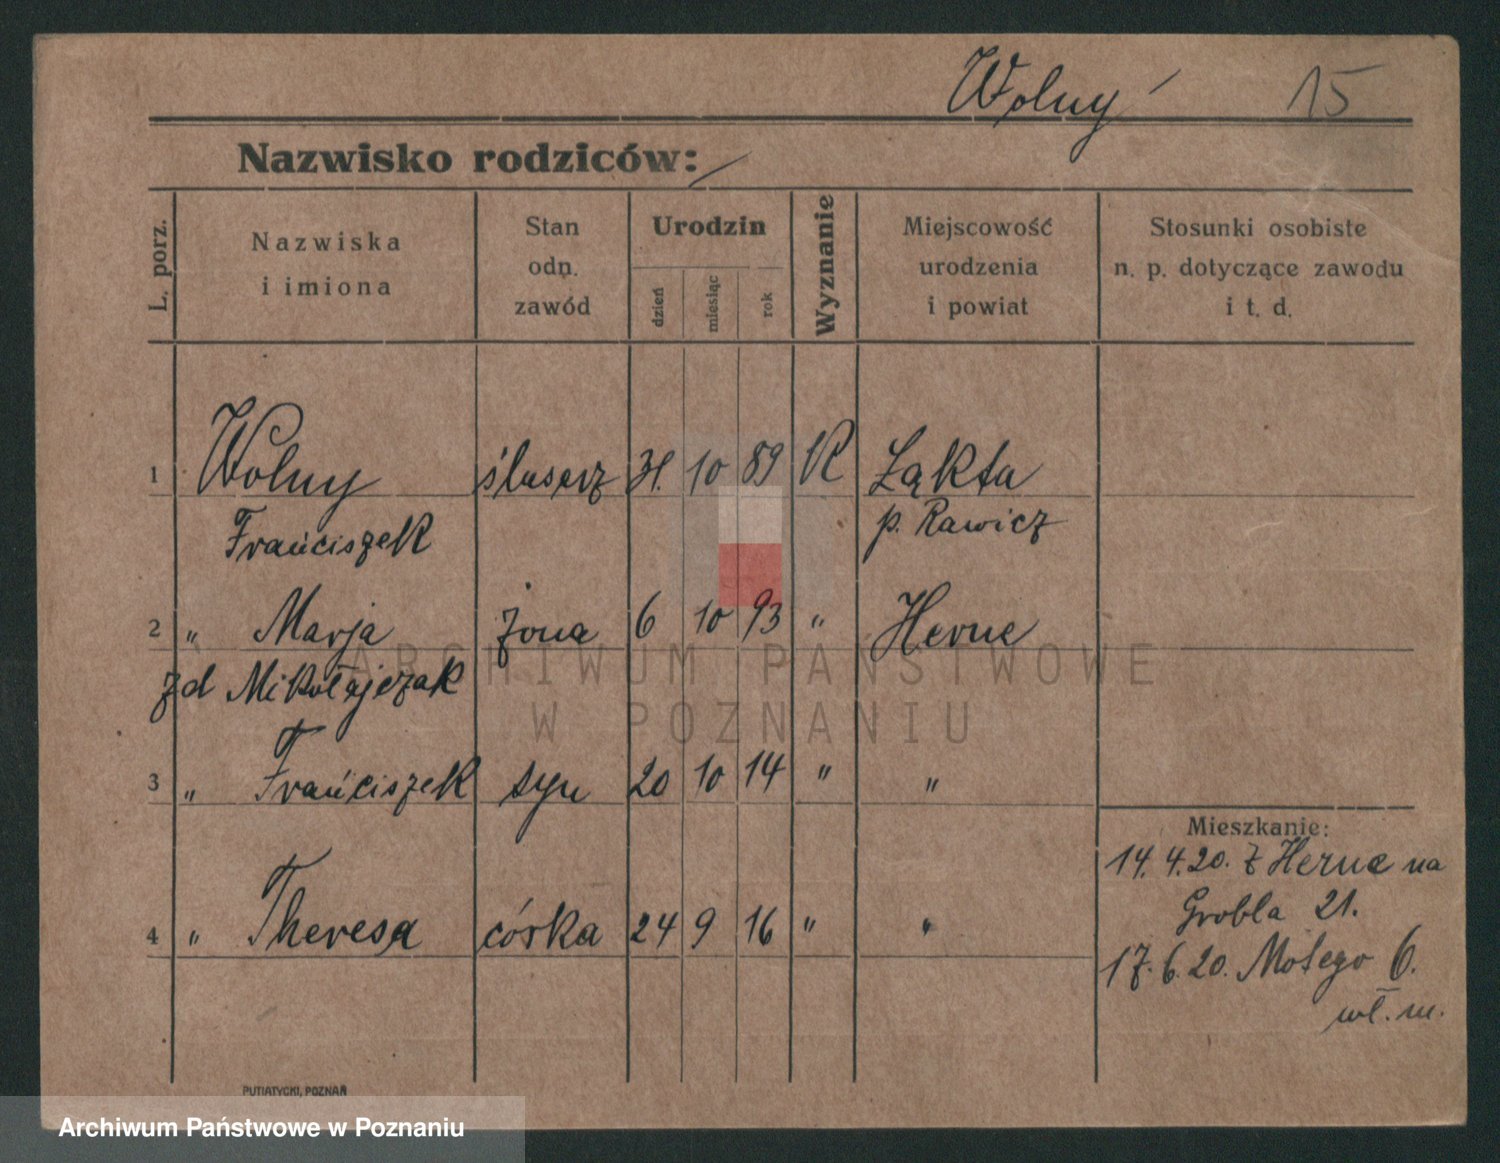 Wolny 15
Nazwisko rodziców:
L. porz.
Nazwiska
i imiona
Stan
odn.
zawód
Urodzin
dzień
miesiąc
rok
Wyznanie
Miejscowość
urodzenia
i powiat
Stosunki osobiste
n. p. dotyczące zawodu
i t. d.
1 Wolny ślusarz 31. 10 89 K Łąkta
Frańciszek p. Rawicz
2 " Marja żona 6 10 93 " Herne
zd Mikołajczak
3 " Frańciszek syn 20 10 14 " "
4 " Theresa córka 24 9 16 " "
Mieszkanie:
14. 4. 20. z Herne na
Grobla 21.
17. 6. 20. Mołego 6.
wł. m.
PUTIATYCKI, POZNAŃ
ARCHIWUM PAŃSTWOWE
W POZNANIU
Archiwum Państwowe w Poznaniu